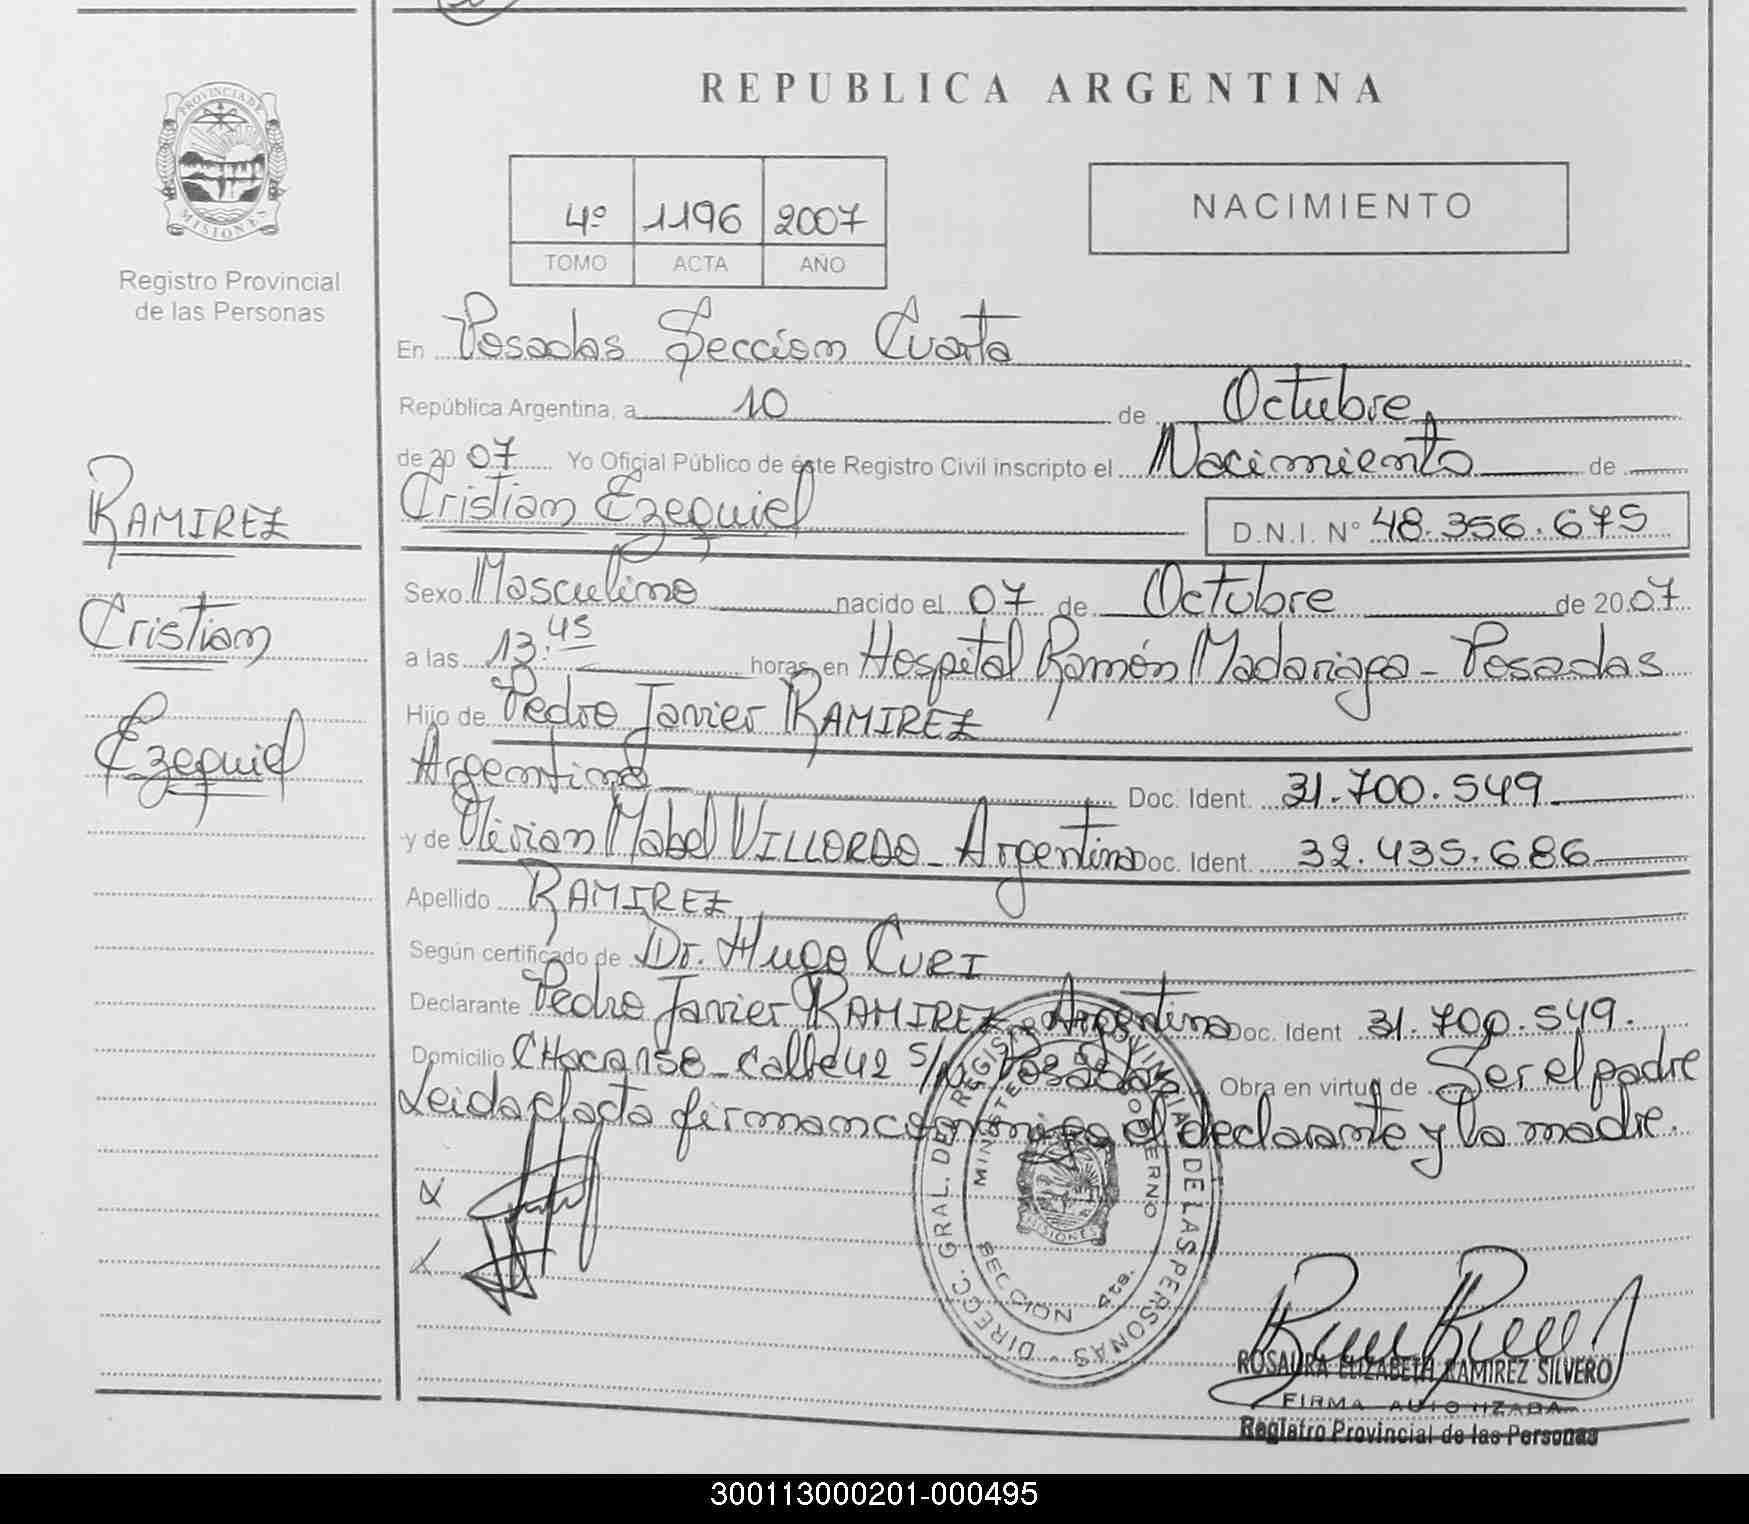 REPUBLICA ARGENTINA
PROVINCIA DE
MISIONES
Registro Provincial
de las Personas
4º 1196 2007
TOMO ACTA AÑO
NACIMIENTO
En Posadas Seccion Cuarta
República Argentina, a 10 de Octubre
de 20 07 Yo Oficial Público de éste Registro Civil inscripto el Nacimiento de
Cristian Ezequiel D.N.I. Nº 48.356.675
RAMIREZ
Cristian
Ezequiel
Sexo Masculino nacido el 07 de Octubre de 20 07
a las 13:45 horas, en Hospital Ramón Madariaga - Posadas
Hijo de Pedro Javier RAMIREZ
Argentino Doc. Ident. 31.700.549
y de Vivian Mabel VILLORDO - Argentina Doc. Ident. 32.435.686
Apellido RAMIREZ
Según certificado de Dr. Hugo CURI
Declarante Pedro Javier RAMIREZ, Argentino Doc. Ident 31.700.549.
Domicilio Calle 42 s/n Posadas Obra en virtud de Ser el padre
Leida el acta firman conmigo el declarante y la madre.
DIRECC. GRAL. DEL REGISTRO PROVINCIAL DE LAS PERSONAS
MINISTERIO DE GOBIERNO
MISIONES
SECCION 4ta.
ROSAURA ELIZABETH RAMIREZ SILVERO
FIRMA AUTORIZADA
Registro Provincial de las Personas
300113000201-000495